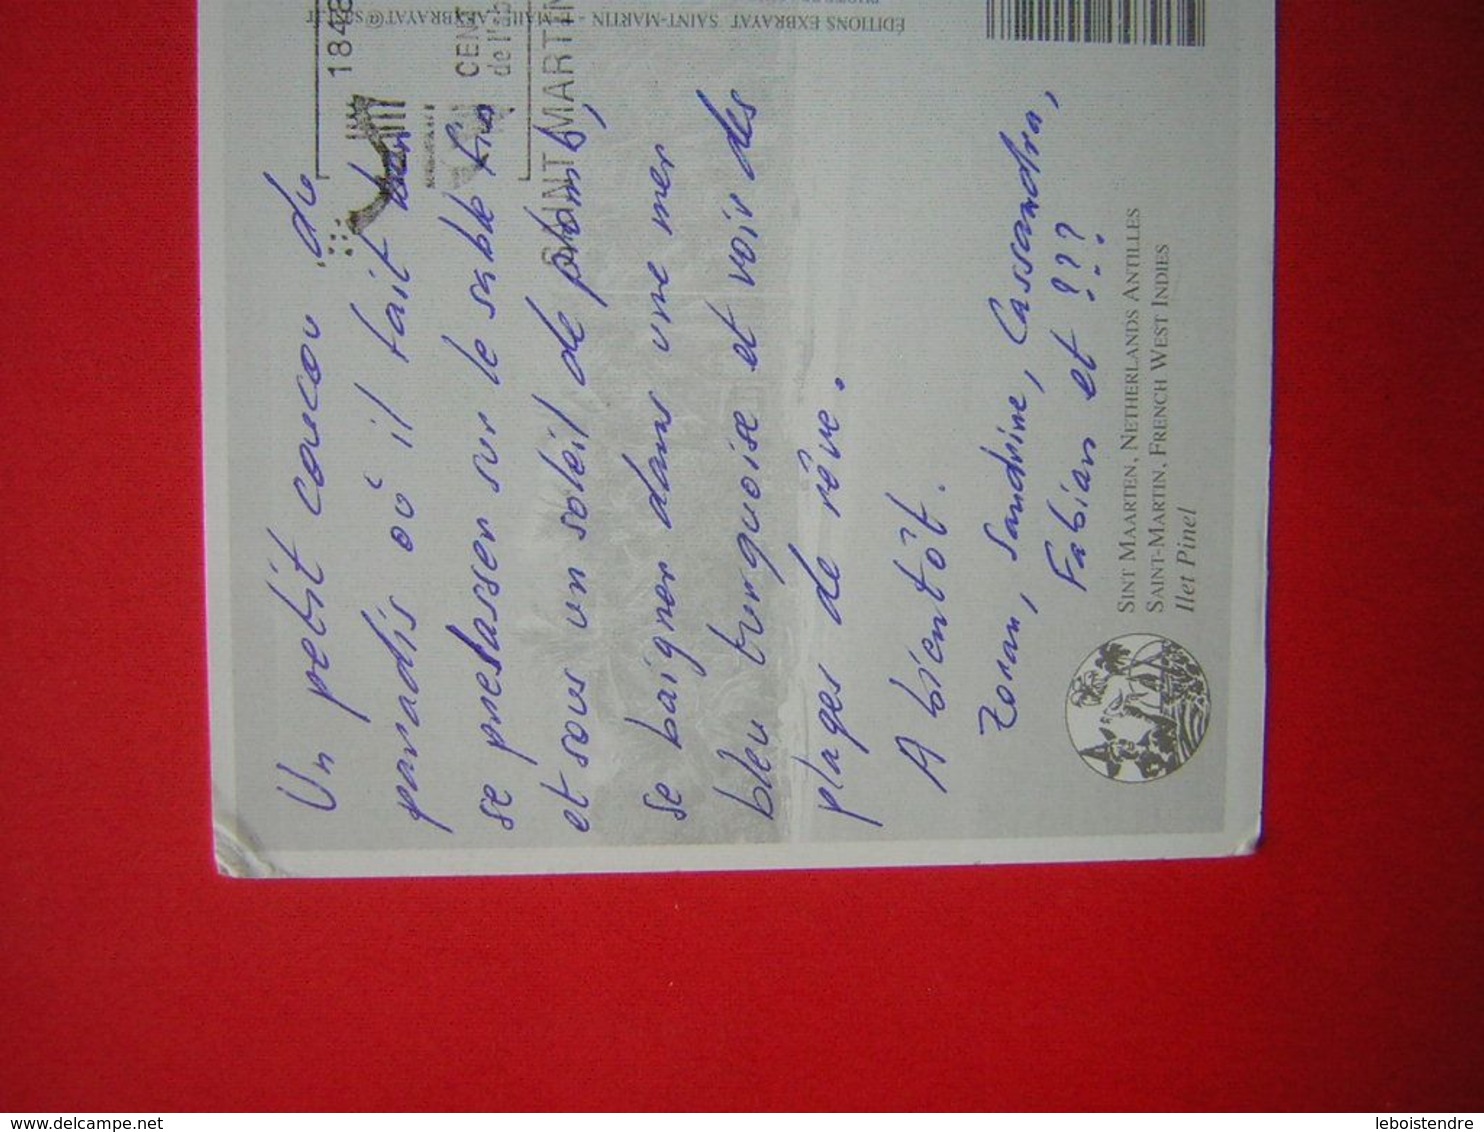 Un petit coucou du
paradis où il fait bon
se prelasser sur le sable fin
et sous un soleil de plomb,
se baigner dans une mer
bleu turquoise et voir des
plages de rêve.
A bientôt.
Zoran, Sandrine, Cassandra,
Fabian et ???
SINT MAARTEN, NETHERLANDS ANTILLES
SAINT-MARTIN, FRENCH WEST INDIES
Ilet Pinel
1848
CENT
de l'
SAINT MARTIN
ÉDITIONS EXBRAYAT SAINT-MARTIN - E-MAIL
leboistendre